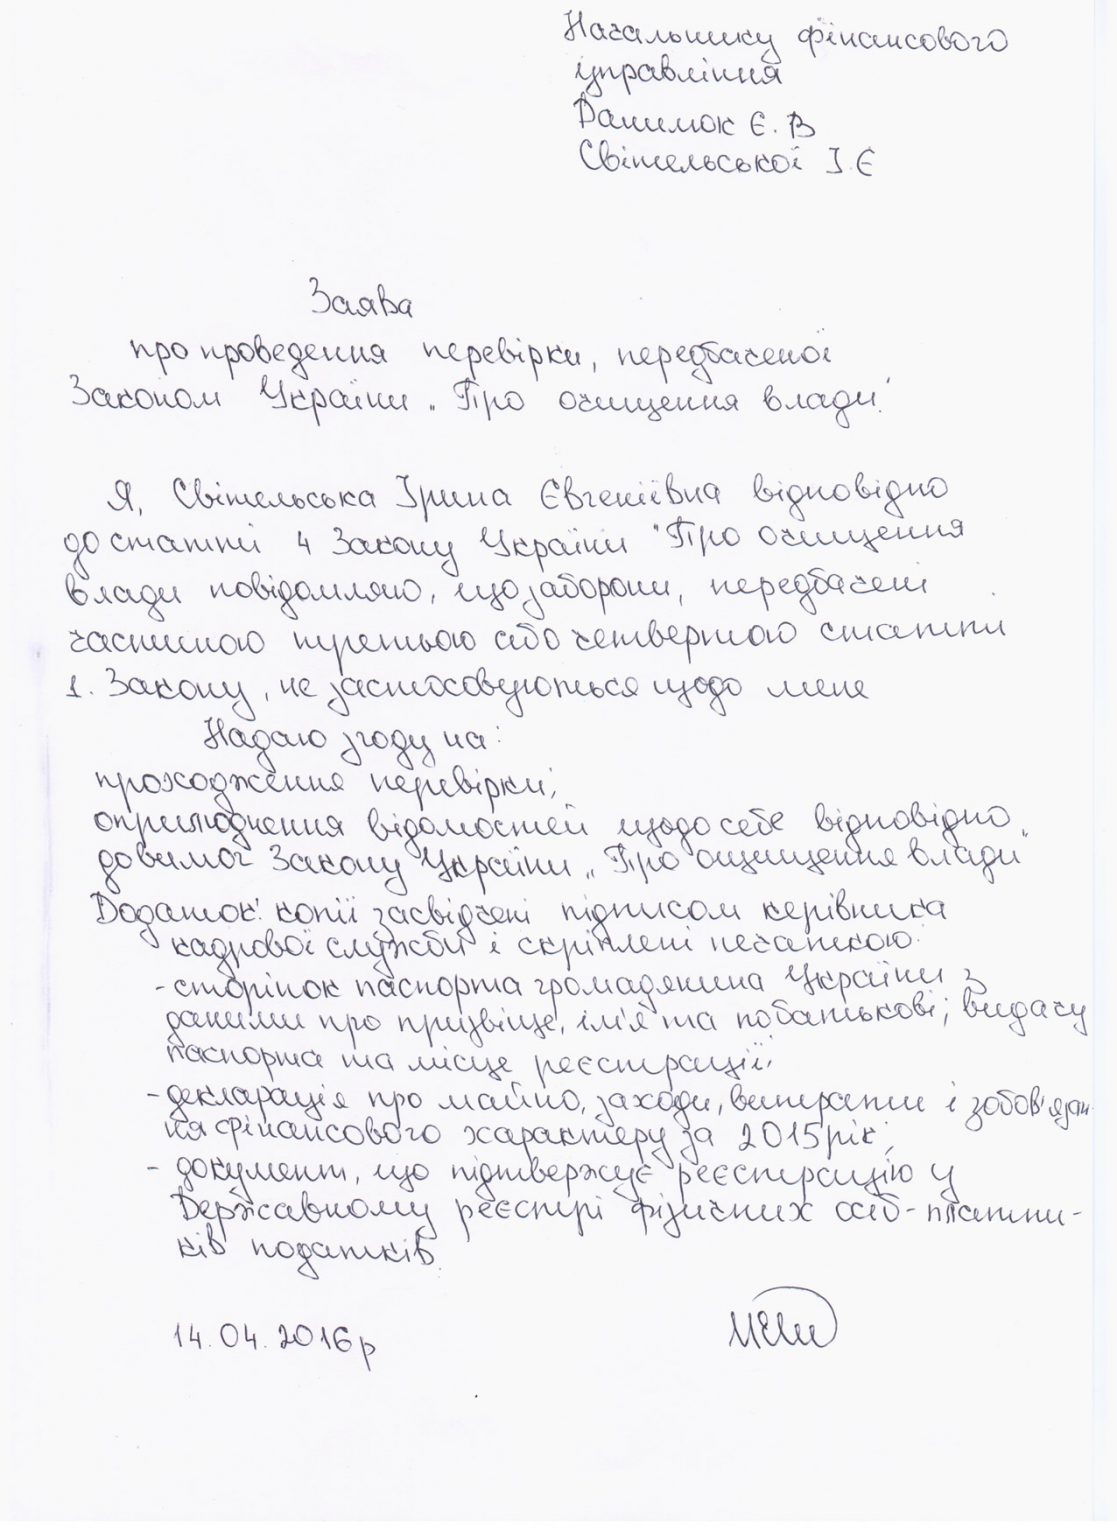 Начальнику фінансового
управління
Данилюк Є. В
Світельської І. Є
Заява
про проведення перевірки, передбаченої
Законом України „Про очищення влади"
Я, Світельська Ірина Євгеніївна відповідно
до статті 4 Закону України "Про очищення
влади повідомляю, що заборони, передбачені
частиною третьою або четвертою статти
1. Закону, не застосовуються щодо мене
Надаю згоду на:
проходження перевірки;
оприлюднення відомостей щодо себе відповідно
до вимог Закону України „Про ощищення влади"
Додаток: копії засвідчені підписом керівника
кадрової служби і скріплені печаткою:
- сторінок паспорта громадянина України з
даними про призвіще, ім'я та побатькові; видачу
паспорта та місце реєстрації;
- декларація про майно, заходи, витрати і зобов'язан
ня фінансового характеру за 2015 рік;
- документ, що підтвержує реєстрацію у
Державному реєстрі фізичних осіб - платни-
ків податків.
14.04.2016 р